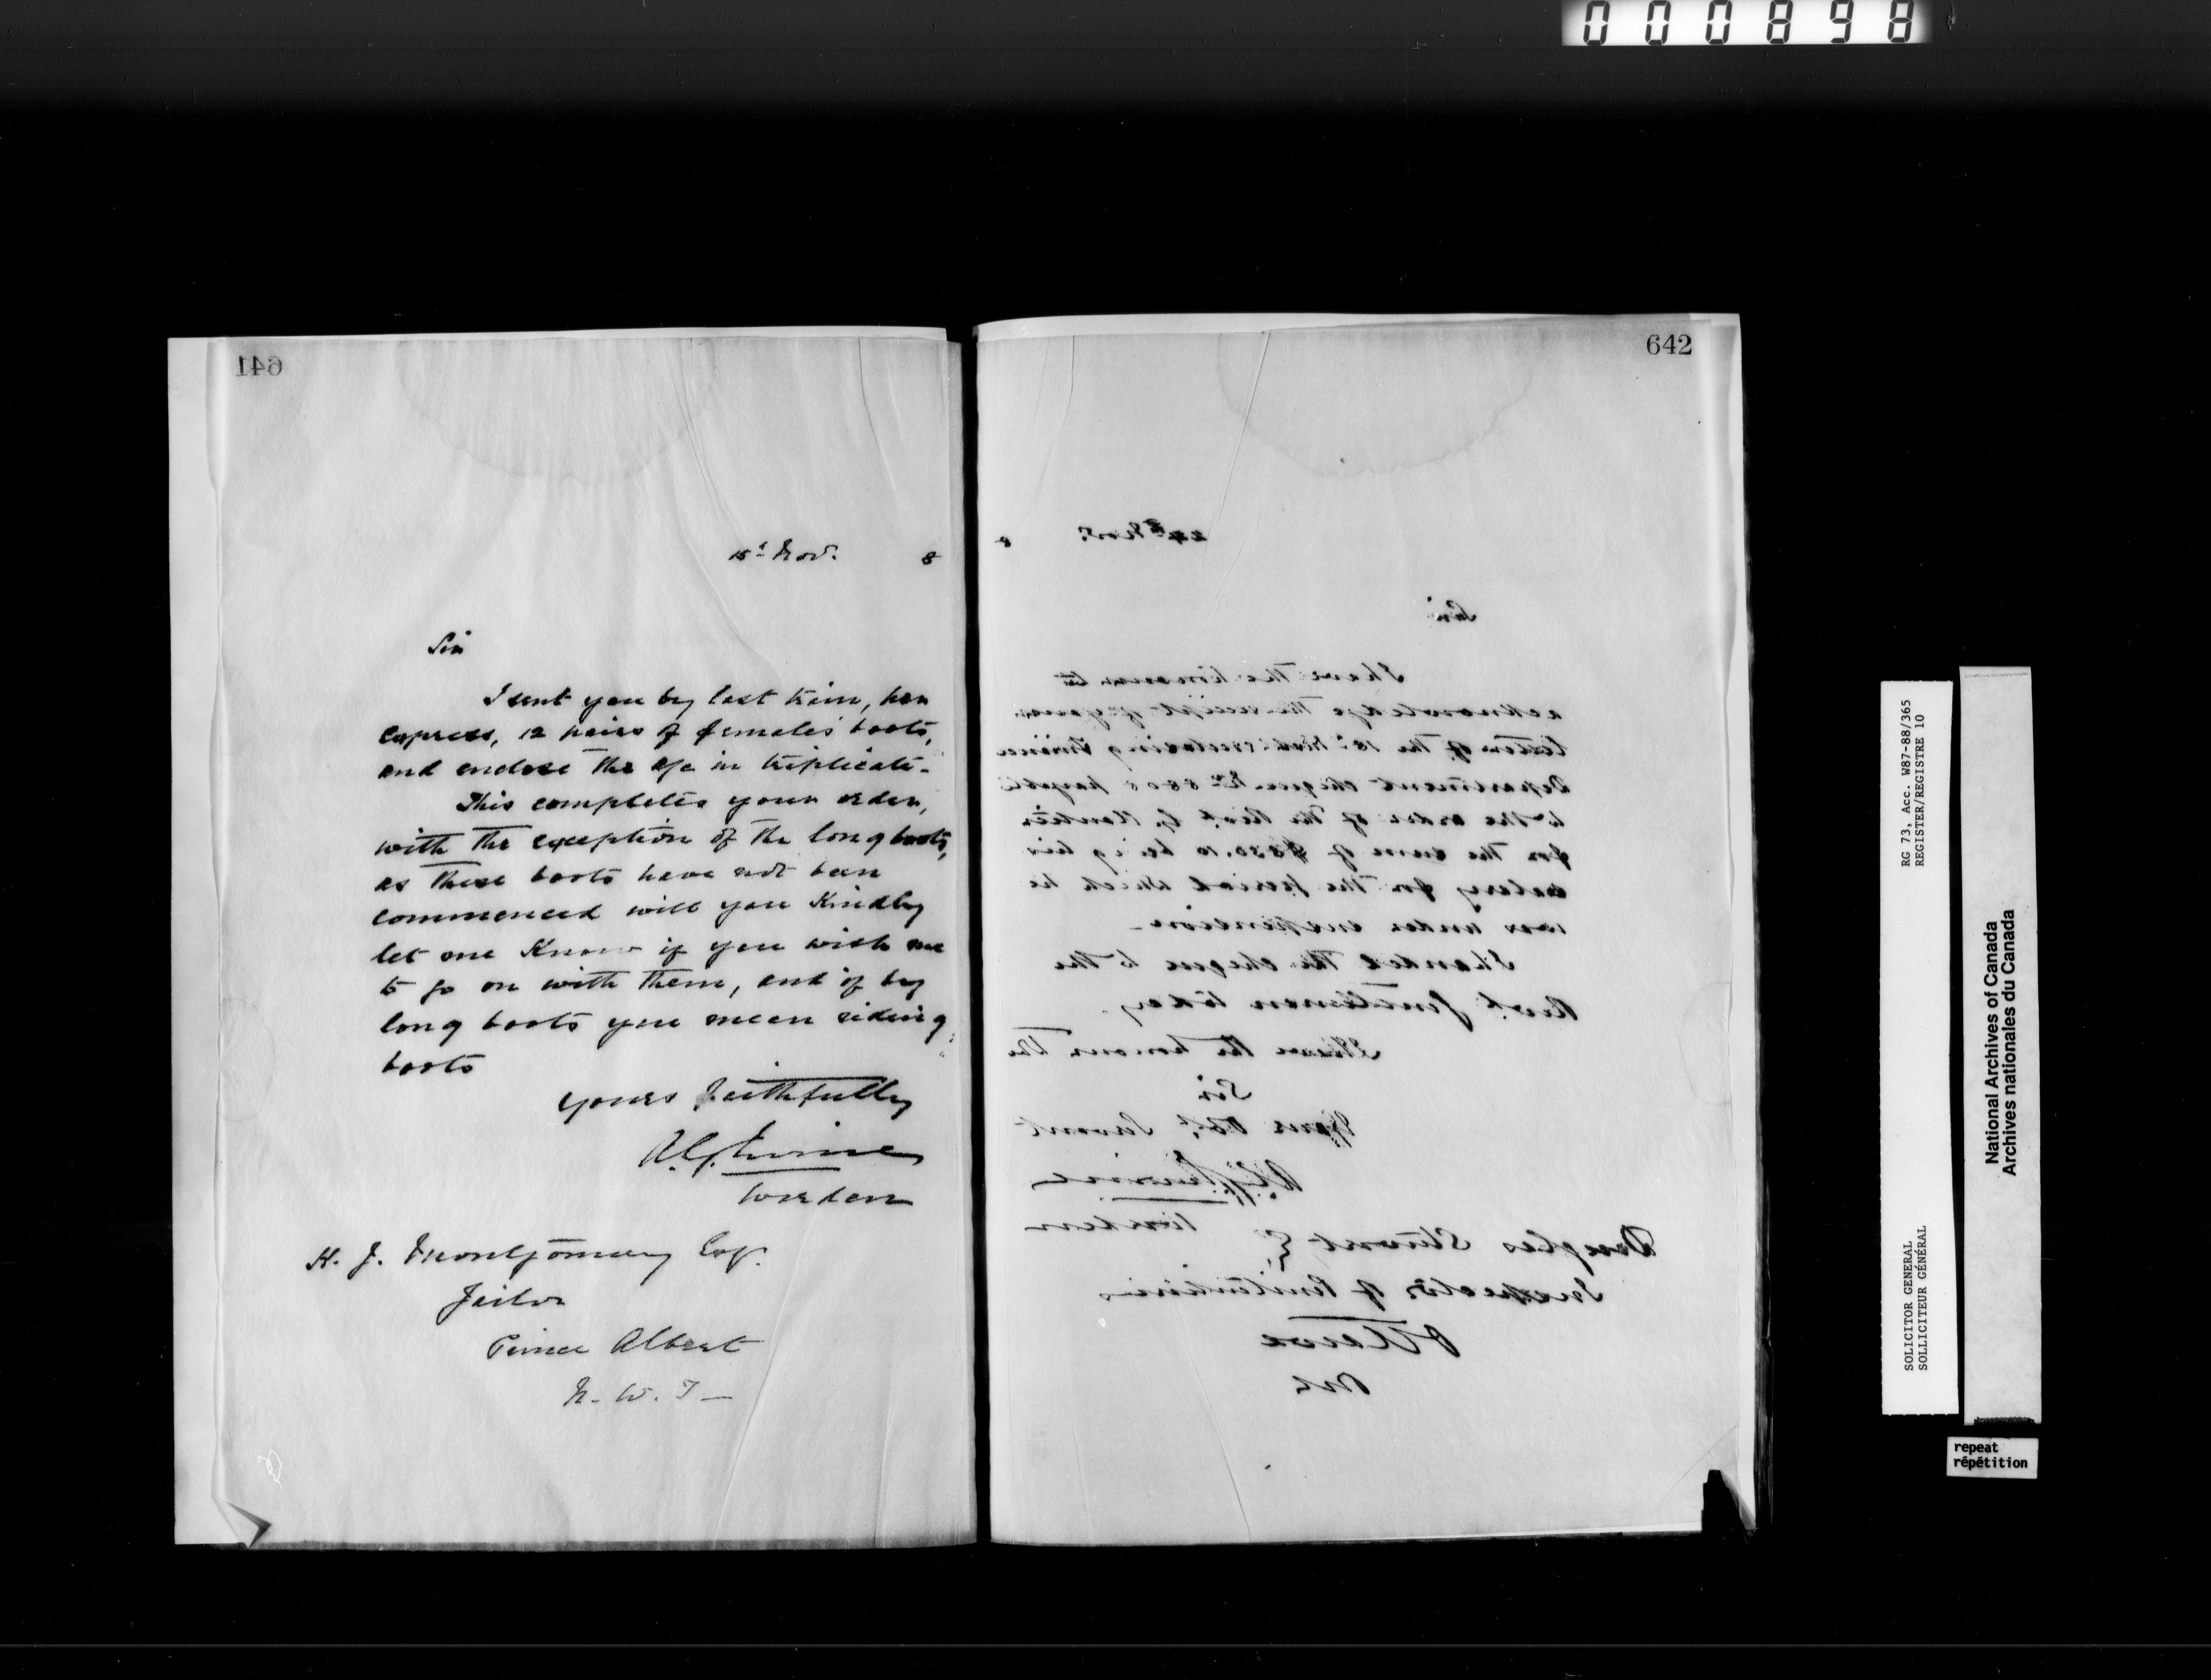 000898
641
15th Nov. 8
Sir
I sent you by last train, per
express, 12 pairs of females boots,
and enclose the a/c in triplicate.
This completes your order,
with the exception of the long boots,
as these boots have not been
commenced will you kindly
let me know if you wish me
to go on with them, and if by
long boots you mean riding
boots
Yours faithfully
Warden
H. J. Montgomery Esq.
Jailor
Prince Albert
N. W. T —
642
Nov. 8
Sir
I have the honour to
acknowledge the receipt of your
letter of the 18th inst: enclosing Finance
Department cheque No. 8808 payable
to the order of the Revd. G. Cloutier
for the sum of being his
salary for the period which he
was under suspension —
I handed the cheque to the
Revd. gentleman today.
I have the honour to be
Sir
Your Obt. Servant
Warden
Douglas Stewart Esq.
Inspector of Penitentiaries
Ottawa
Ont
RG 73, Acc. W87-88/365
REGISTER/REGISTRE 10
SOLICITOR GENERAL
SOLLICITEUR GÉNÉRAL
National Archives of Canada
Archives nationales du Canada
repeat
répétition